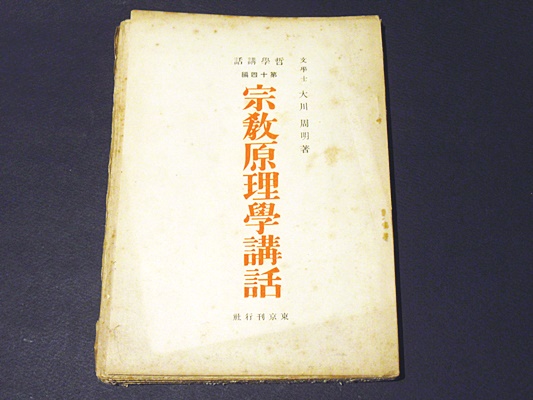 文學士 大川周明著
話講學哲
編四十第
宗教原理學講話
社行刊京東